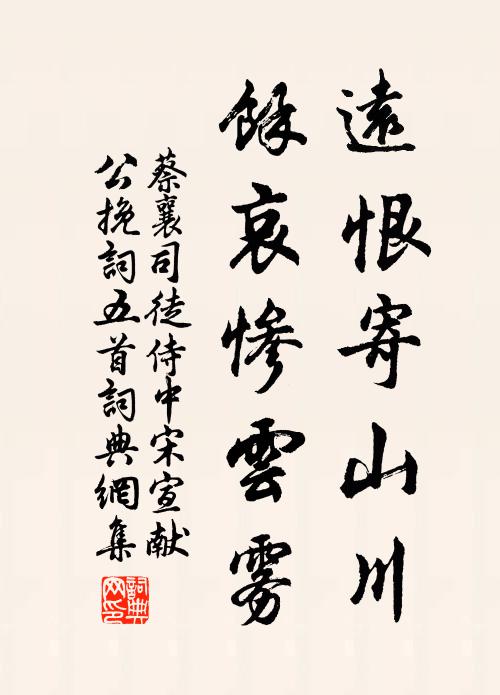 遠恨寄山川
餘哀慘雲雾
蔡襄司徒侍中宋宣献
公挽詞五首詞典網集